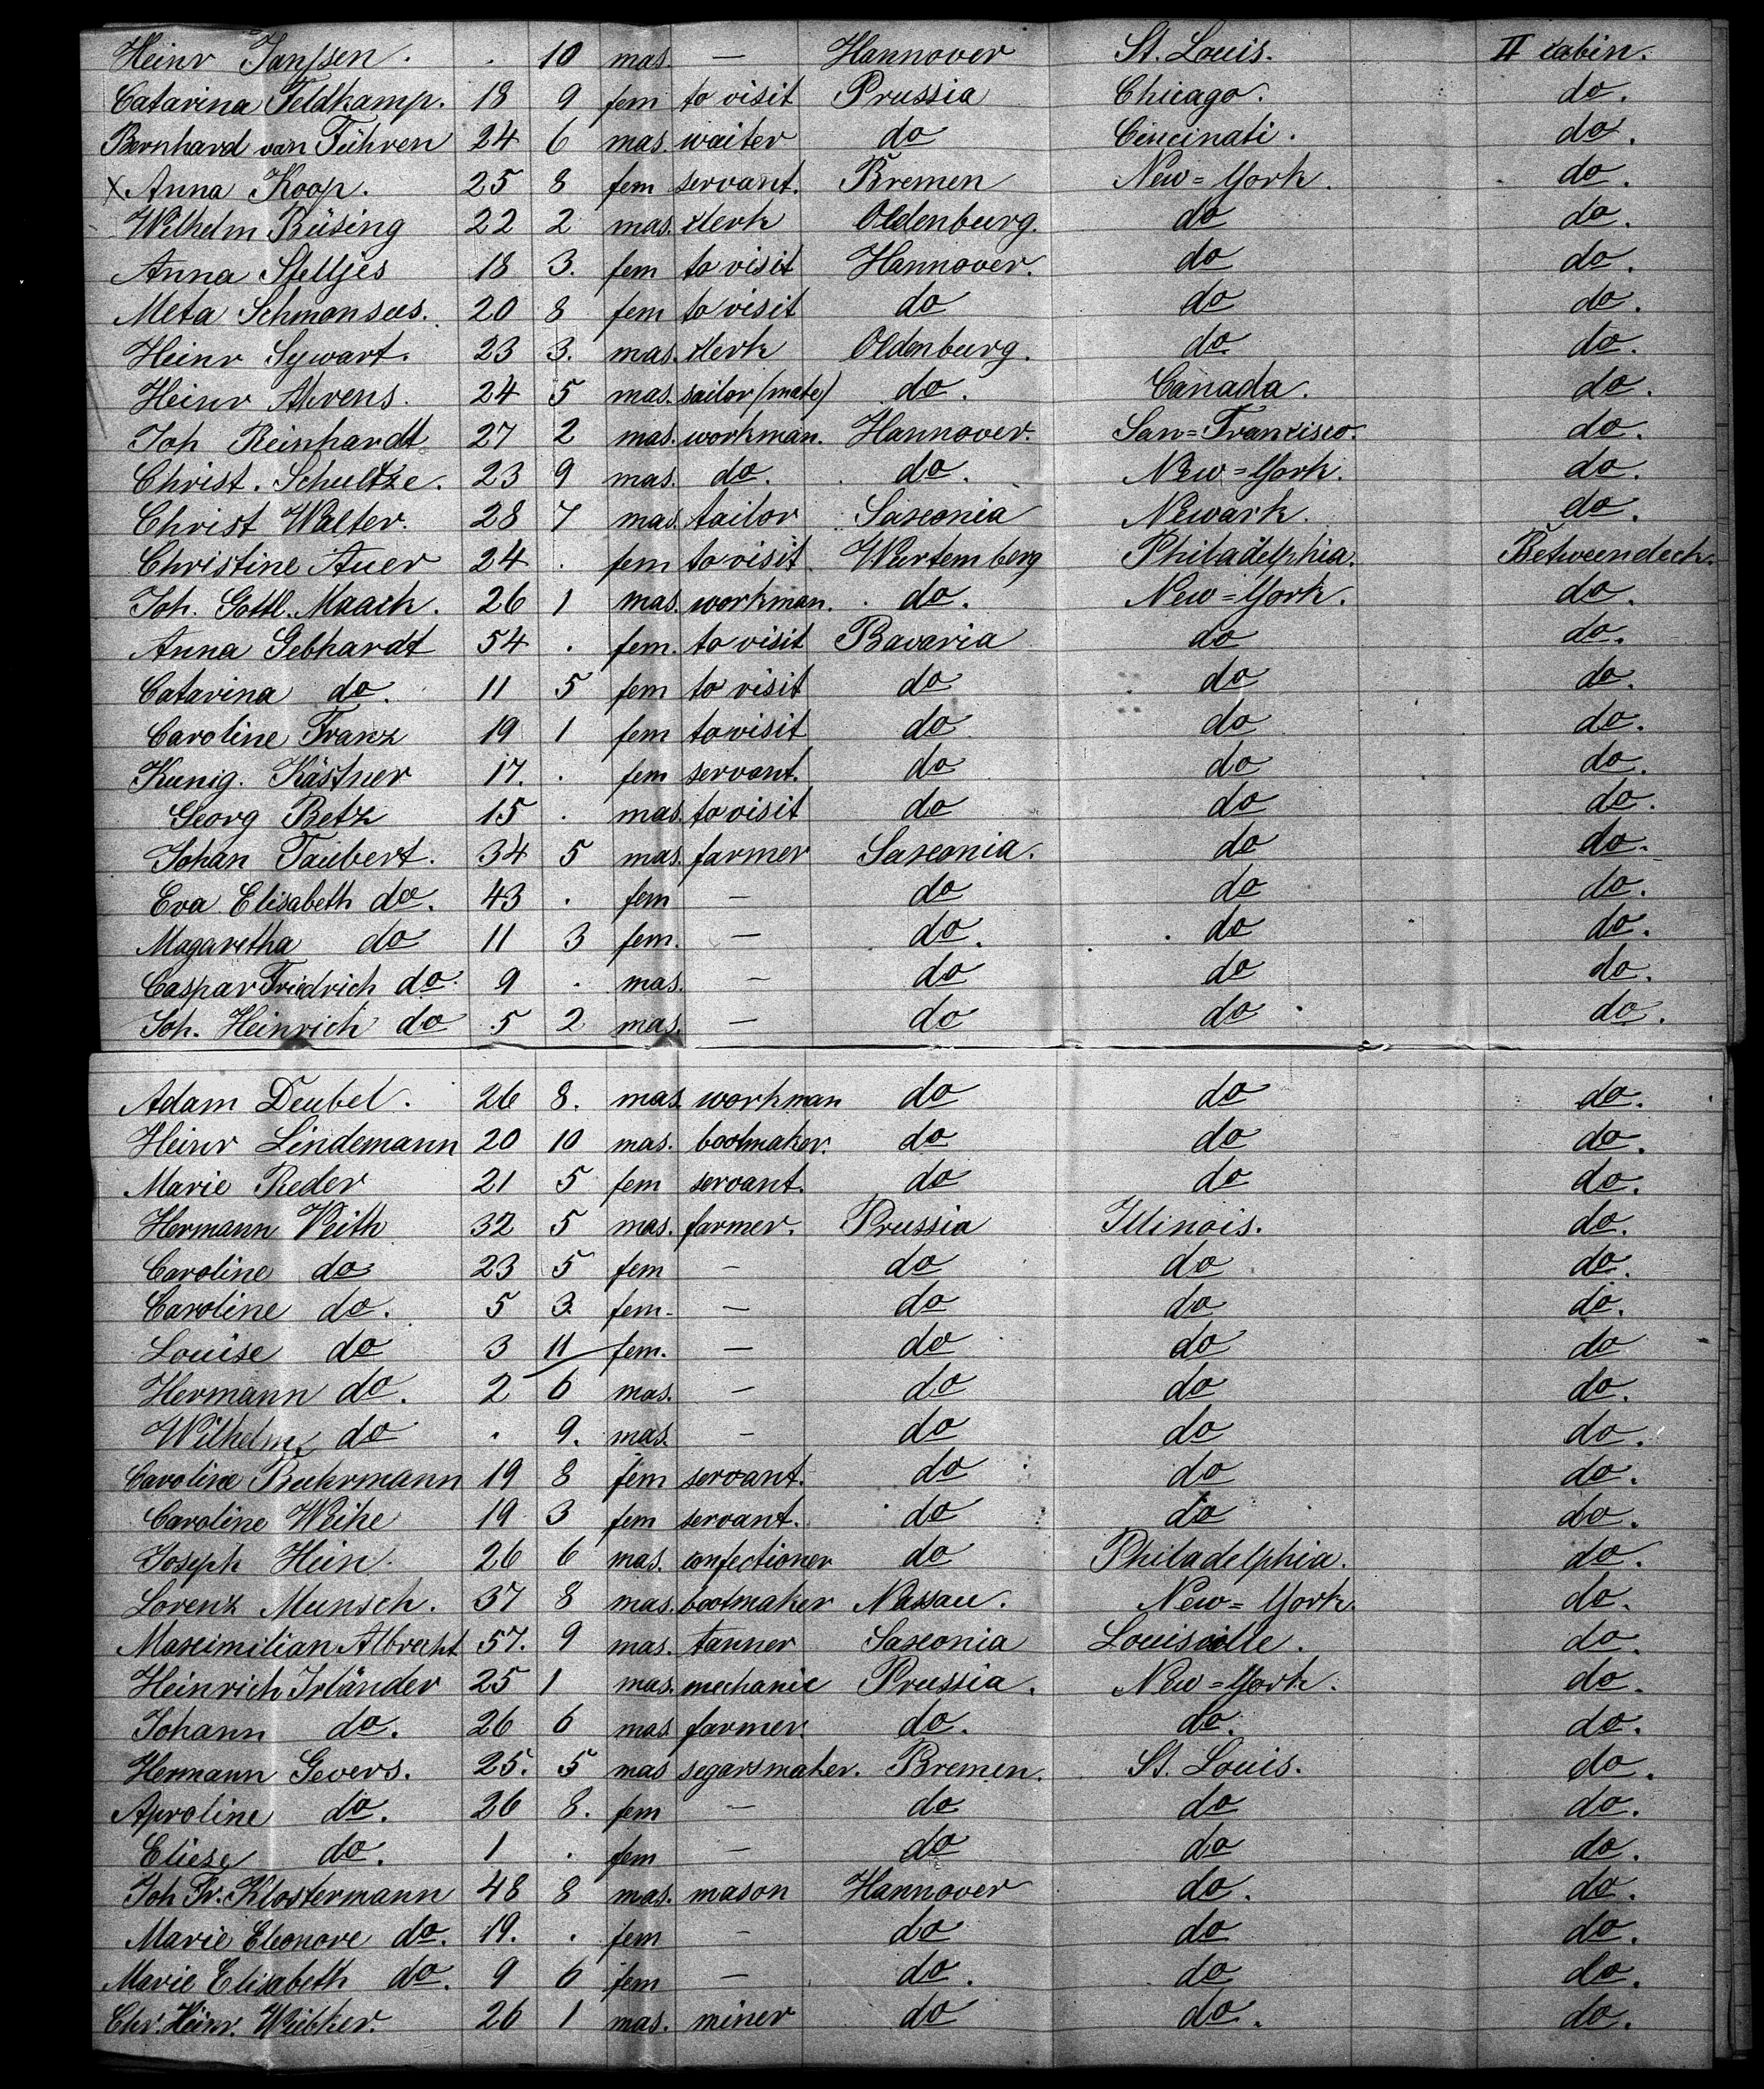 Heinr Janssen . . 10 mas. — Hannover St. Louis. II cabin.
Catarina Feldkamp. 18 9 fem to visit Prussia Chicago. do.
Bernhard van Führen 24 6 mas. waiter do Cincinati. do.
X Anna Koop. 25 8 fem servant. Bremen New=York. do.
Wilhelm Büsing 22 2 mas. clerk Oldenburg. do do.
Anna Stelljes 18 3. fem to visit Hannover. do do.
Meta Schmonsees. 20 8 fem to visit do do do.
Heinr Sywart. 23 3. mas. clerk Oldenburg. do. do.
Heinr Ahrens. 24 5 mas. sailor (mate) do. Canada. do.
Joh Reinhardt 27 2 mas. workman. Hannover. San=Franzisco. do.
Christ. Schultze. 23 9 mas. do. do. New=York. do.
Christ Walter. 28 7 mas. tailor Saxonia Newark. do.
Christine Auer 24 . fem to visit. Wurtemberg Philadelphia. Betweendeck.
Joh. Gottl. Maack. 26 1 mas. workman. do. New=York. do.
Anna Gebhardt 54 . fem. to visit Bavaria do do.
Catarina do. 11 5 fem to visit do do do.
Caroline Franz 19 1 fem to visit do do do.
Kunig. Kästner 17. . fem servant. do do do.
Georg Betz 15 . mas. to visit do do do.
Johan Taubert. 34 5 mas. farmer Saxonia. do do.
Eva Elisabeth do. 43 . fem — do do do.
Magaretha do 11 3 fem. — do. do do.
Caspar Friedrich do. 9 . mas. — do do do.
Joh. Heinrich do 5 2 mas. — do do do.
Adam Deubel. 26 8. mas. workman do do do.
Heinr Lindemann 20 10 mas. bootmaker. do do do.
Marie Reder 21 5 fem servant. do do do.
Hermann Veith 32 5 mas. farmer. Prussia Illinois. do.
Caroline do 23 5 fem — do do do.
Caroline do. 5 3 fem. — do do do.
Louise do 3 11 fem. — do do do
Hermann do. 2 6 mas. — do do do.
Wilhelm do . 9. mas. — do do do.
Caroline 19 8 fem servant. do do do.
Caroline Weihe 19 3 fem servant. do do do.
Joseph Hein. 26 6 mas. confectioner do Philadelphia. do.
Lorenz Munsch. 37 8 mas. bootmaker Nassau. New=York. do.
Maximilian Albrecht 57. 9 mas. tanner Saxonia Louisville. do.
Heinrich Irländer 25 1 mas. mechanic Prussia. New=York. do.
Johann do. 26 6 mas farmer. do. do. do.
Hermann Gevers. 25. 5 mas segarsmaker. Bremen. St. Louis. do.
Aproline do. 26 8. fem — do do do.
Eliese do. 1 . fem — do do do.
Joh Fr. Klostermann 48 8 mas. mason Hannover do. do.
Marie Eleonore do. 19. . fem — do do do.
Marie Elisabeth do. 9 6 fem — do. do do.
Chr. Heinr. Wiebker. 26 1 mas. miner do do. do.